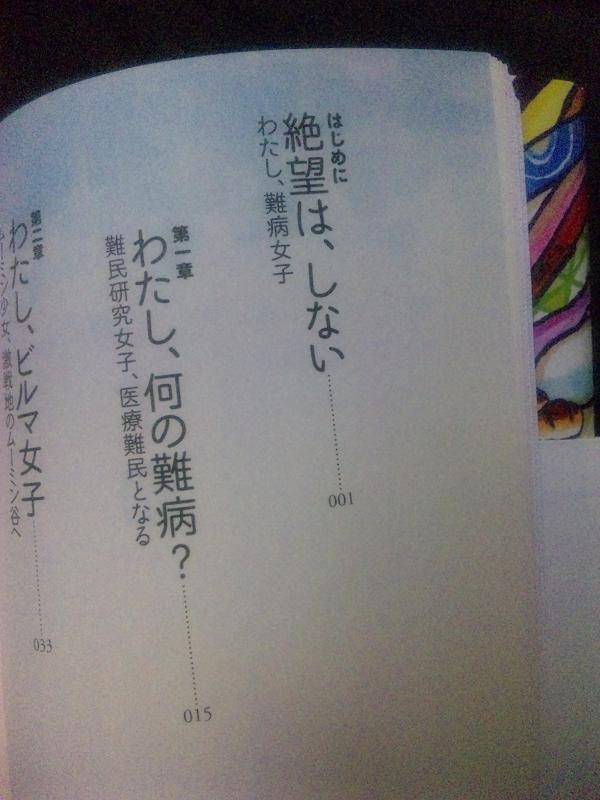 はじめに
絶望は、しない……………001
わたし、難病女子
第一章
わたし、何の難病？……………015
難民研究女子、医療難民となる
第二章
わたし、ビルマ女子……………033
ムーミン少女、激戦地のムーミン谷へ